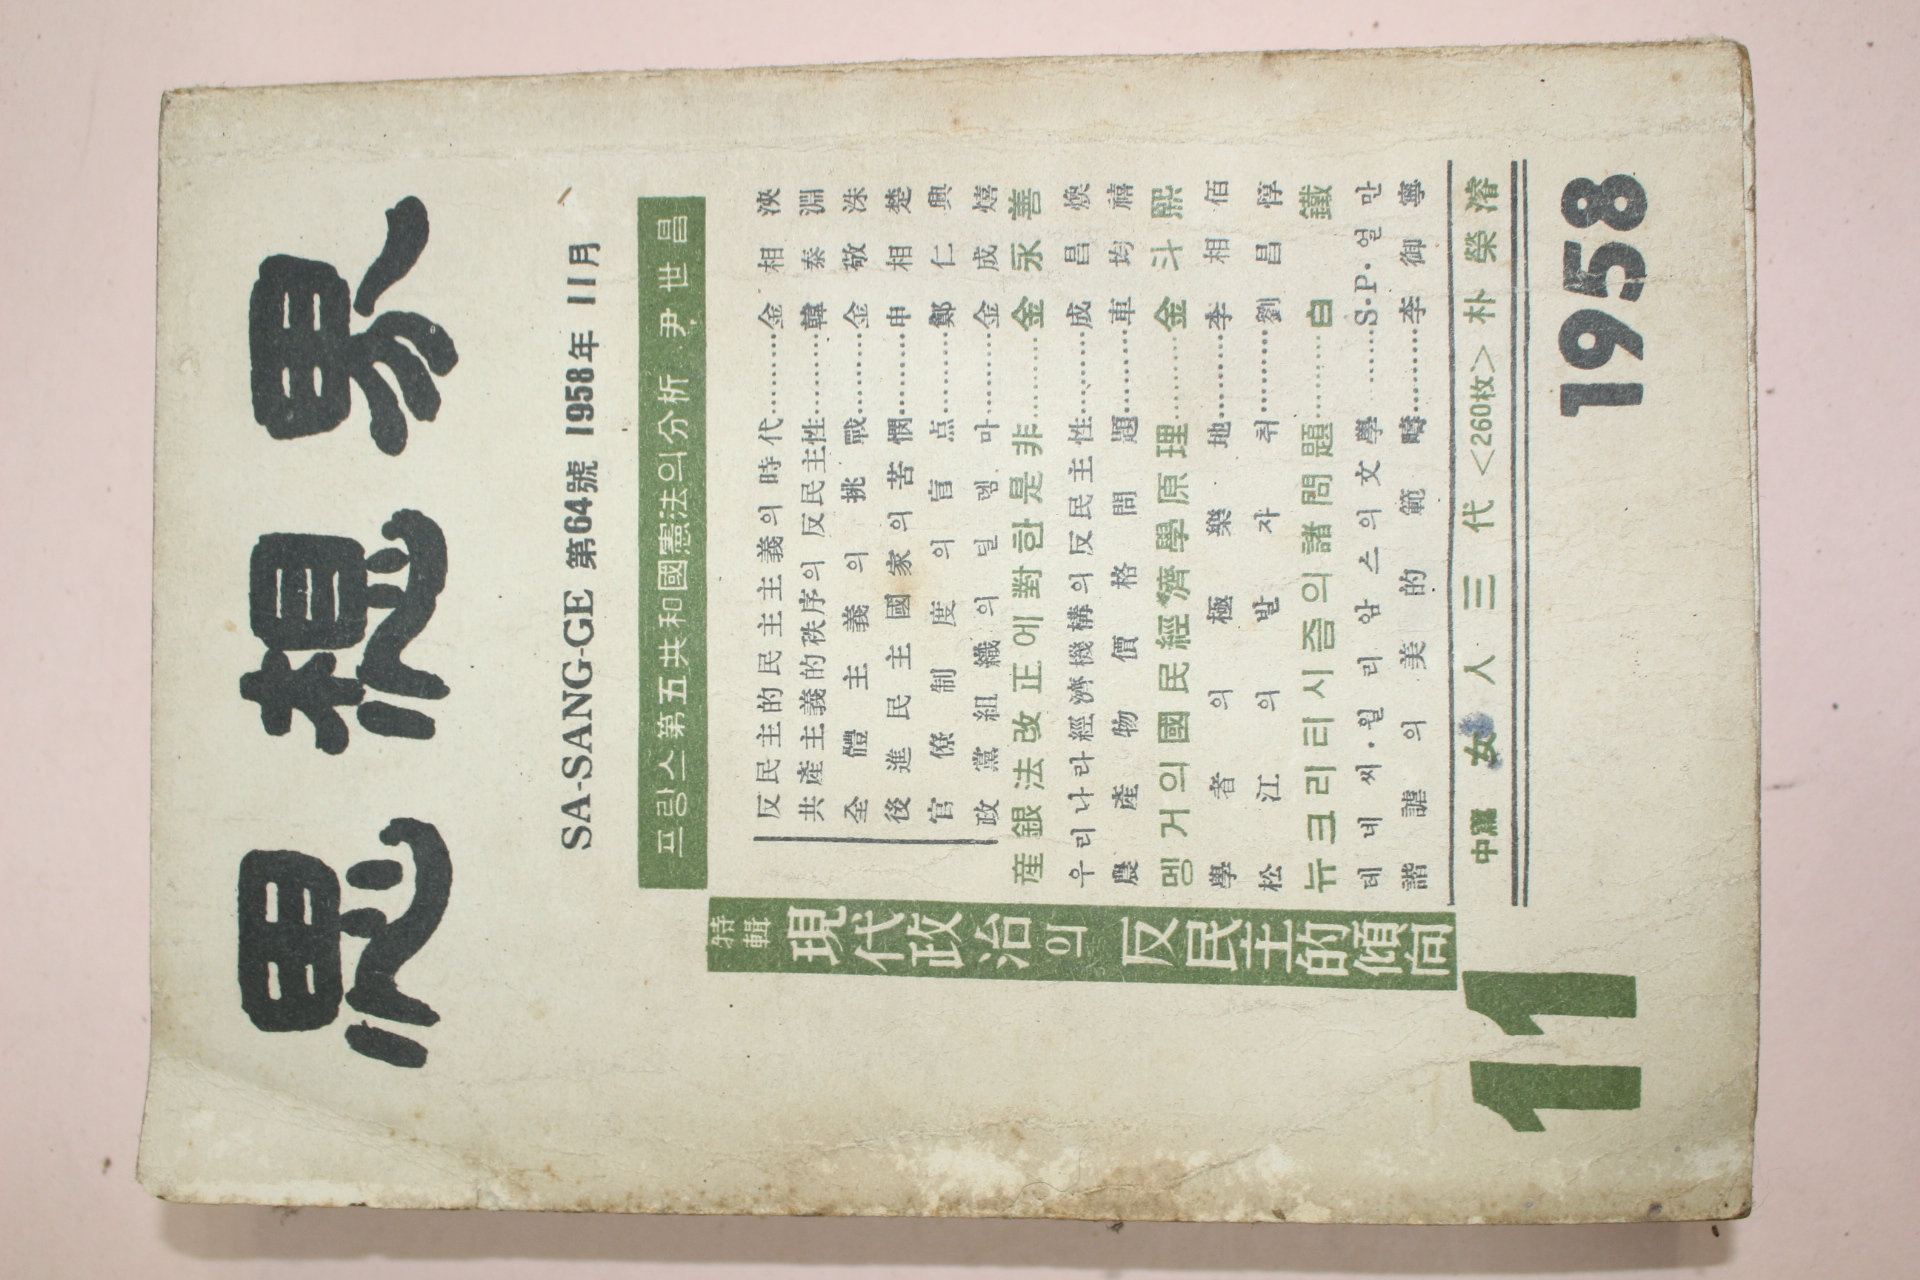 思想界
SA-SANG-GE 第64號 1958年 11月
프랑스第五共和國憲法의分析 尹世昌
特輯
現代政治의 反民主的傾向
反民主的民主主義의時代………金相浹
共産主義的秩序의反民主性………韓泰淵
全體主義의挑戰………金敬洙
後進民主國家의苦憫………申相楚
官僚制度의盲点………鄭仁興
政黨組織의딜렘마………金成熺
産銀法改正에對한是非………金永善
우리나라經濟機構의反民主性………成昌煥
農産物價格問題………車均禧
멩거의國民經濟學原理………金斗熙
學者의極樂地………李相佰
松江의발자취………劉昌惇
뉴크리티시즘의諸問題………白鐵
테네씨·윌리암스의文學………S·P·얼만
諧謔의美的範疇………李御寧
中篇 女人三代 <260枚> 朴榮濬
11
1958